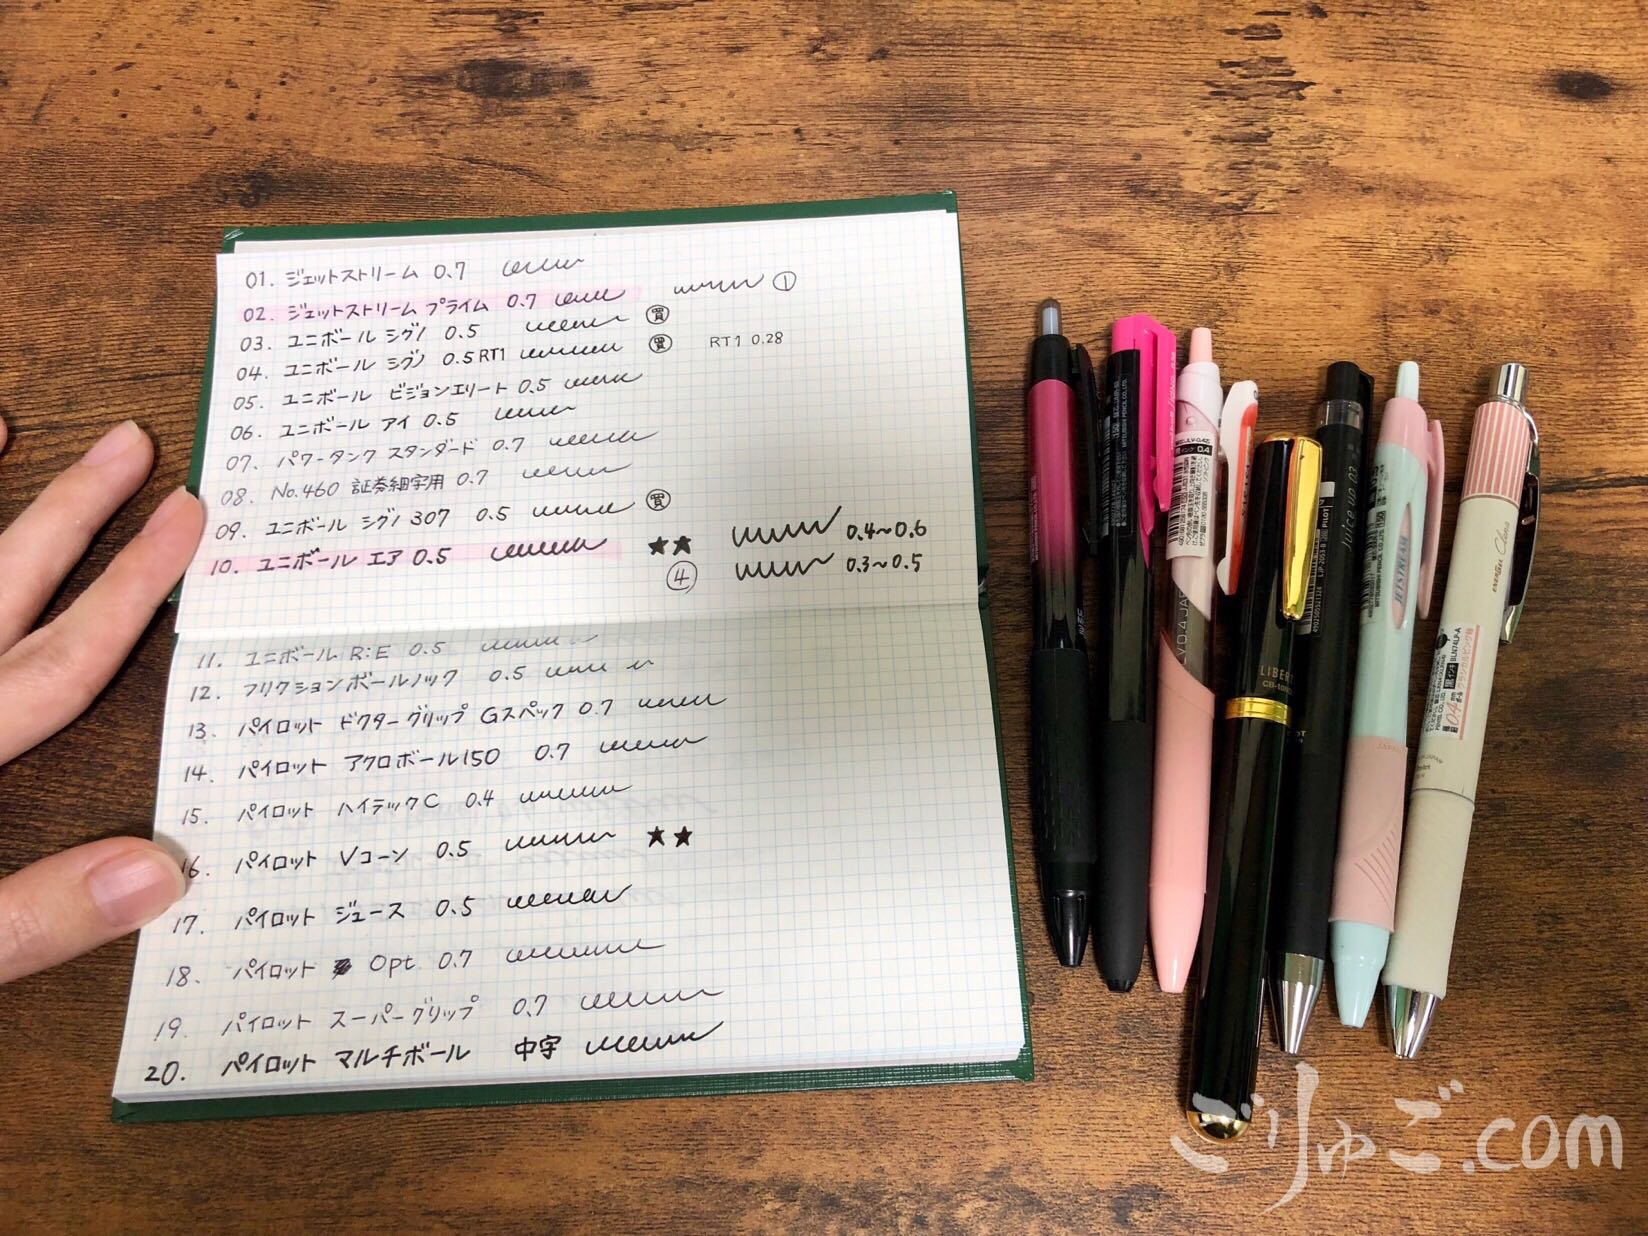 01. ジェットストリーム 0.7
02. ジェットストリーム プライム 0.7 ①
03. ユニボール シグノ 0.5 ㊮
04. ユニボール シグノ 0.5 RT1 RT1 0.28
05. ユニボール ビジョンエリート 0.5
06. ユニボール アイ 0.5
07. パワータンク スタンダード 0.7
08. No.460 証券細字用 0.7
09. ユニボール シグノ 307 0.5
10. ユニボール エア 0.5 ★★ 0.4~0.6
④ 0.3~0.5
11. ユニボール R:E 0.5
12. フリクションボールノック 0.5
13. パイロット ドクターグリップ Gスペック 0.7
14. パイロット アクロボール150 0.7
15. パイロット ハイテックC 0.4
16. パイロット Vコーン 0.5 ★★
17. パイロット ジュース 0.5
18. パイロット Opt 0.7
19. パイロット スーパーグリップ 0.7
20. パイロット マルチボール 中字
Juice up 03
JETSTREAM
0.4
ごりゅご.com